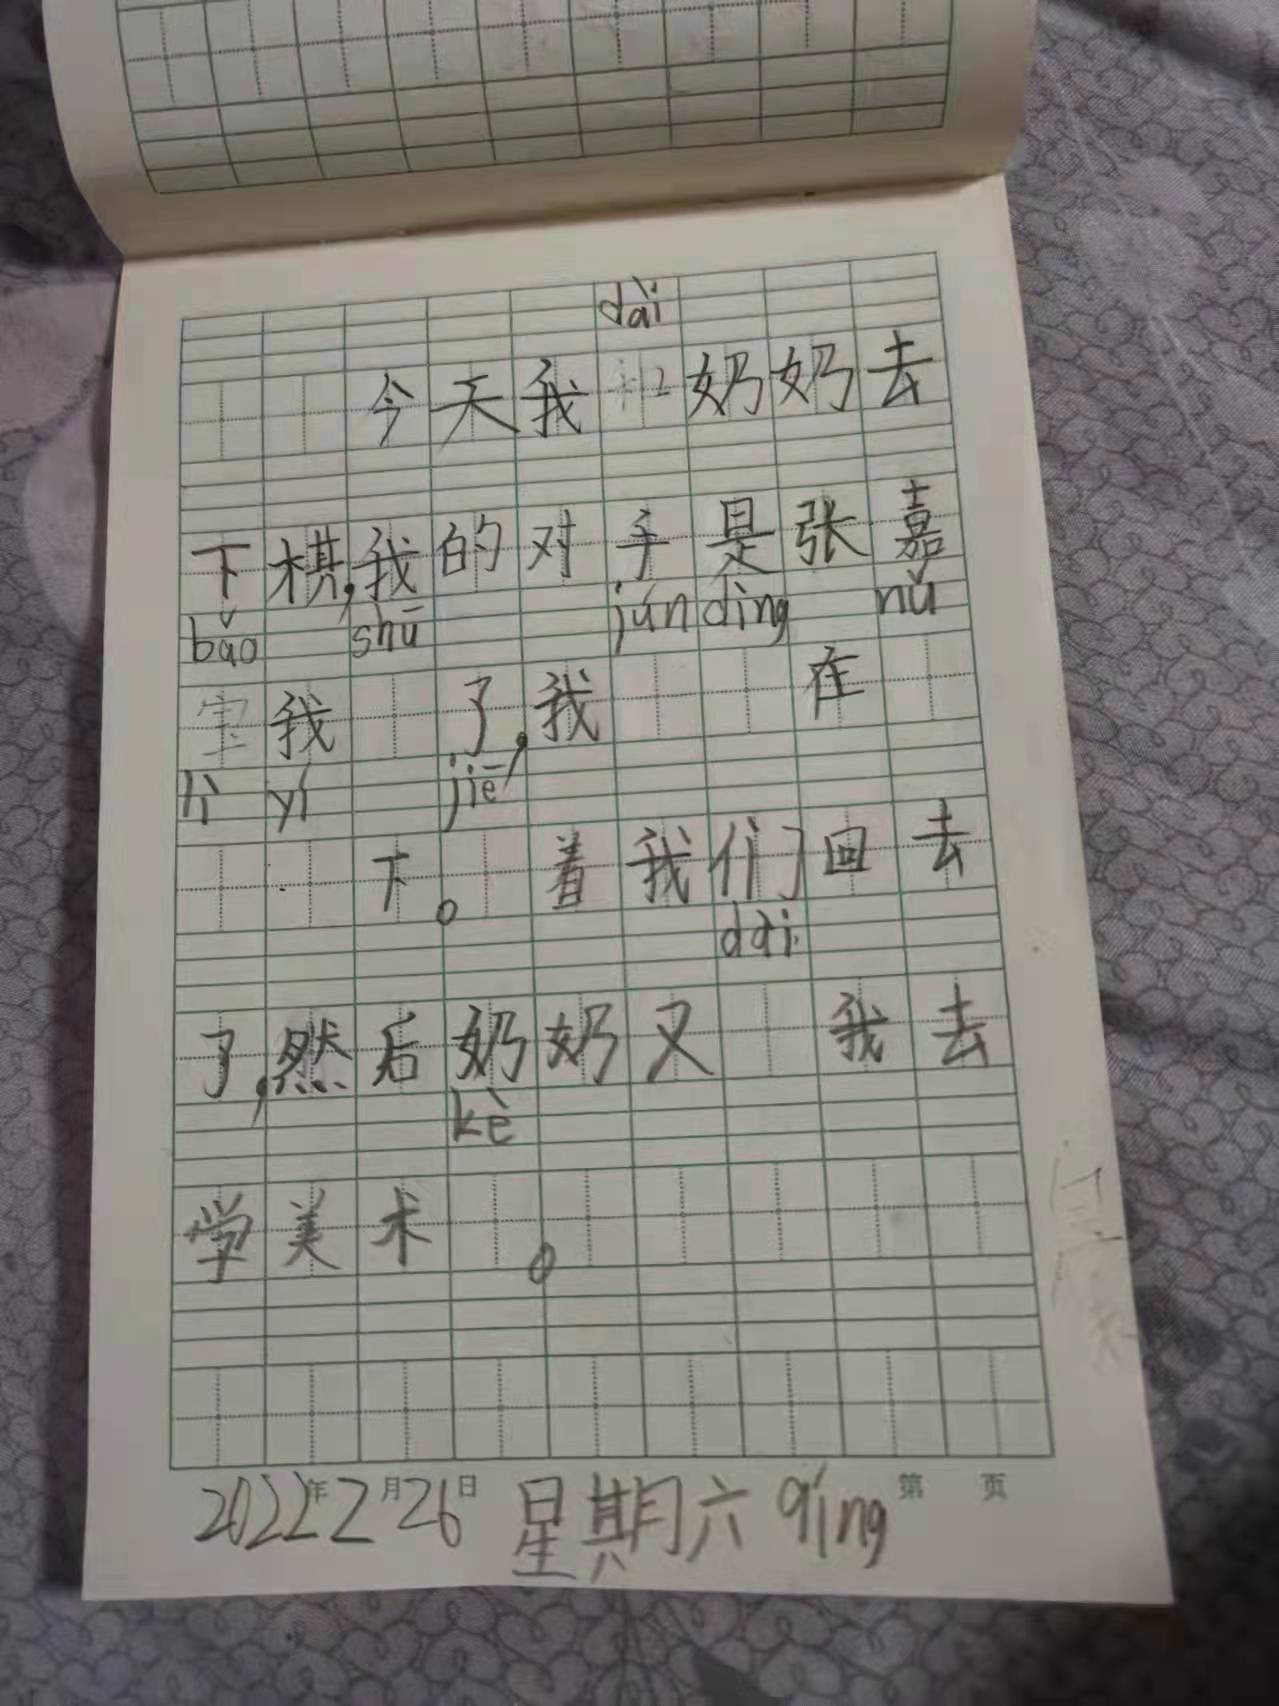 dài
今天我和奶奶去
下棋,我的对手是张嘉
bǎo shū jún dìng nǚ
宝我 了,我 在
yí jiē
下。 着我们回去
dài
了,然后奶奶又 我去
kè
学美术 。
2022年2月26日 星期六 qíng 第 页